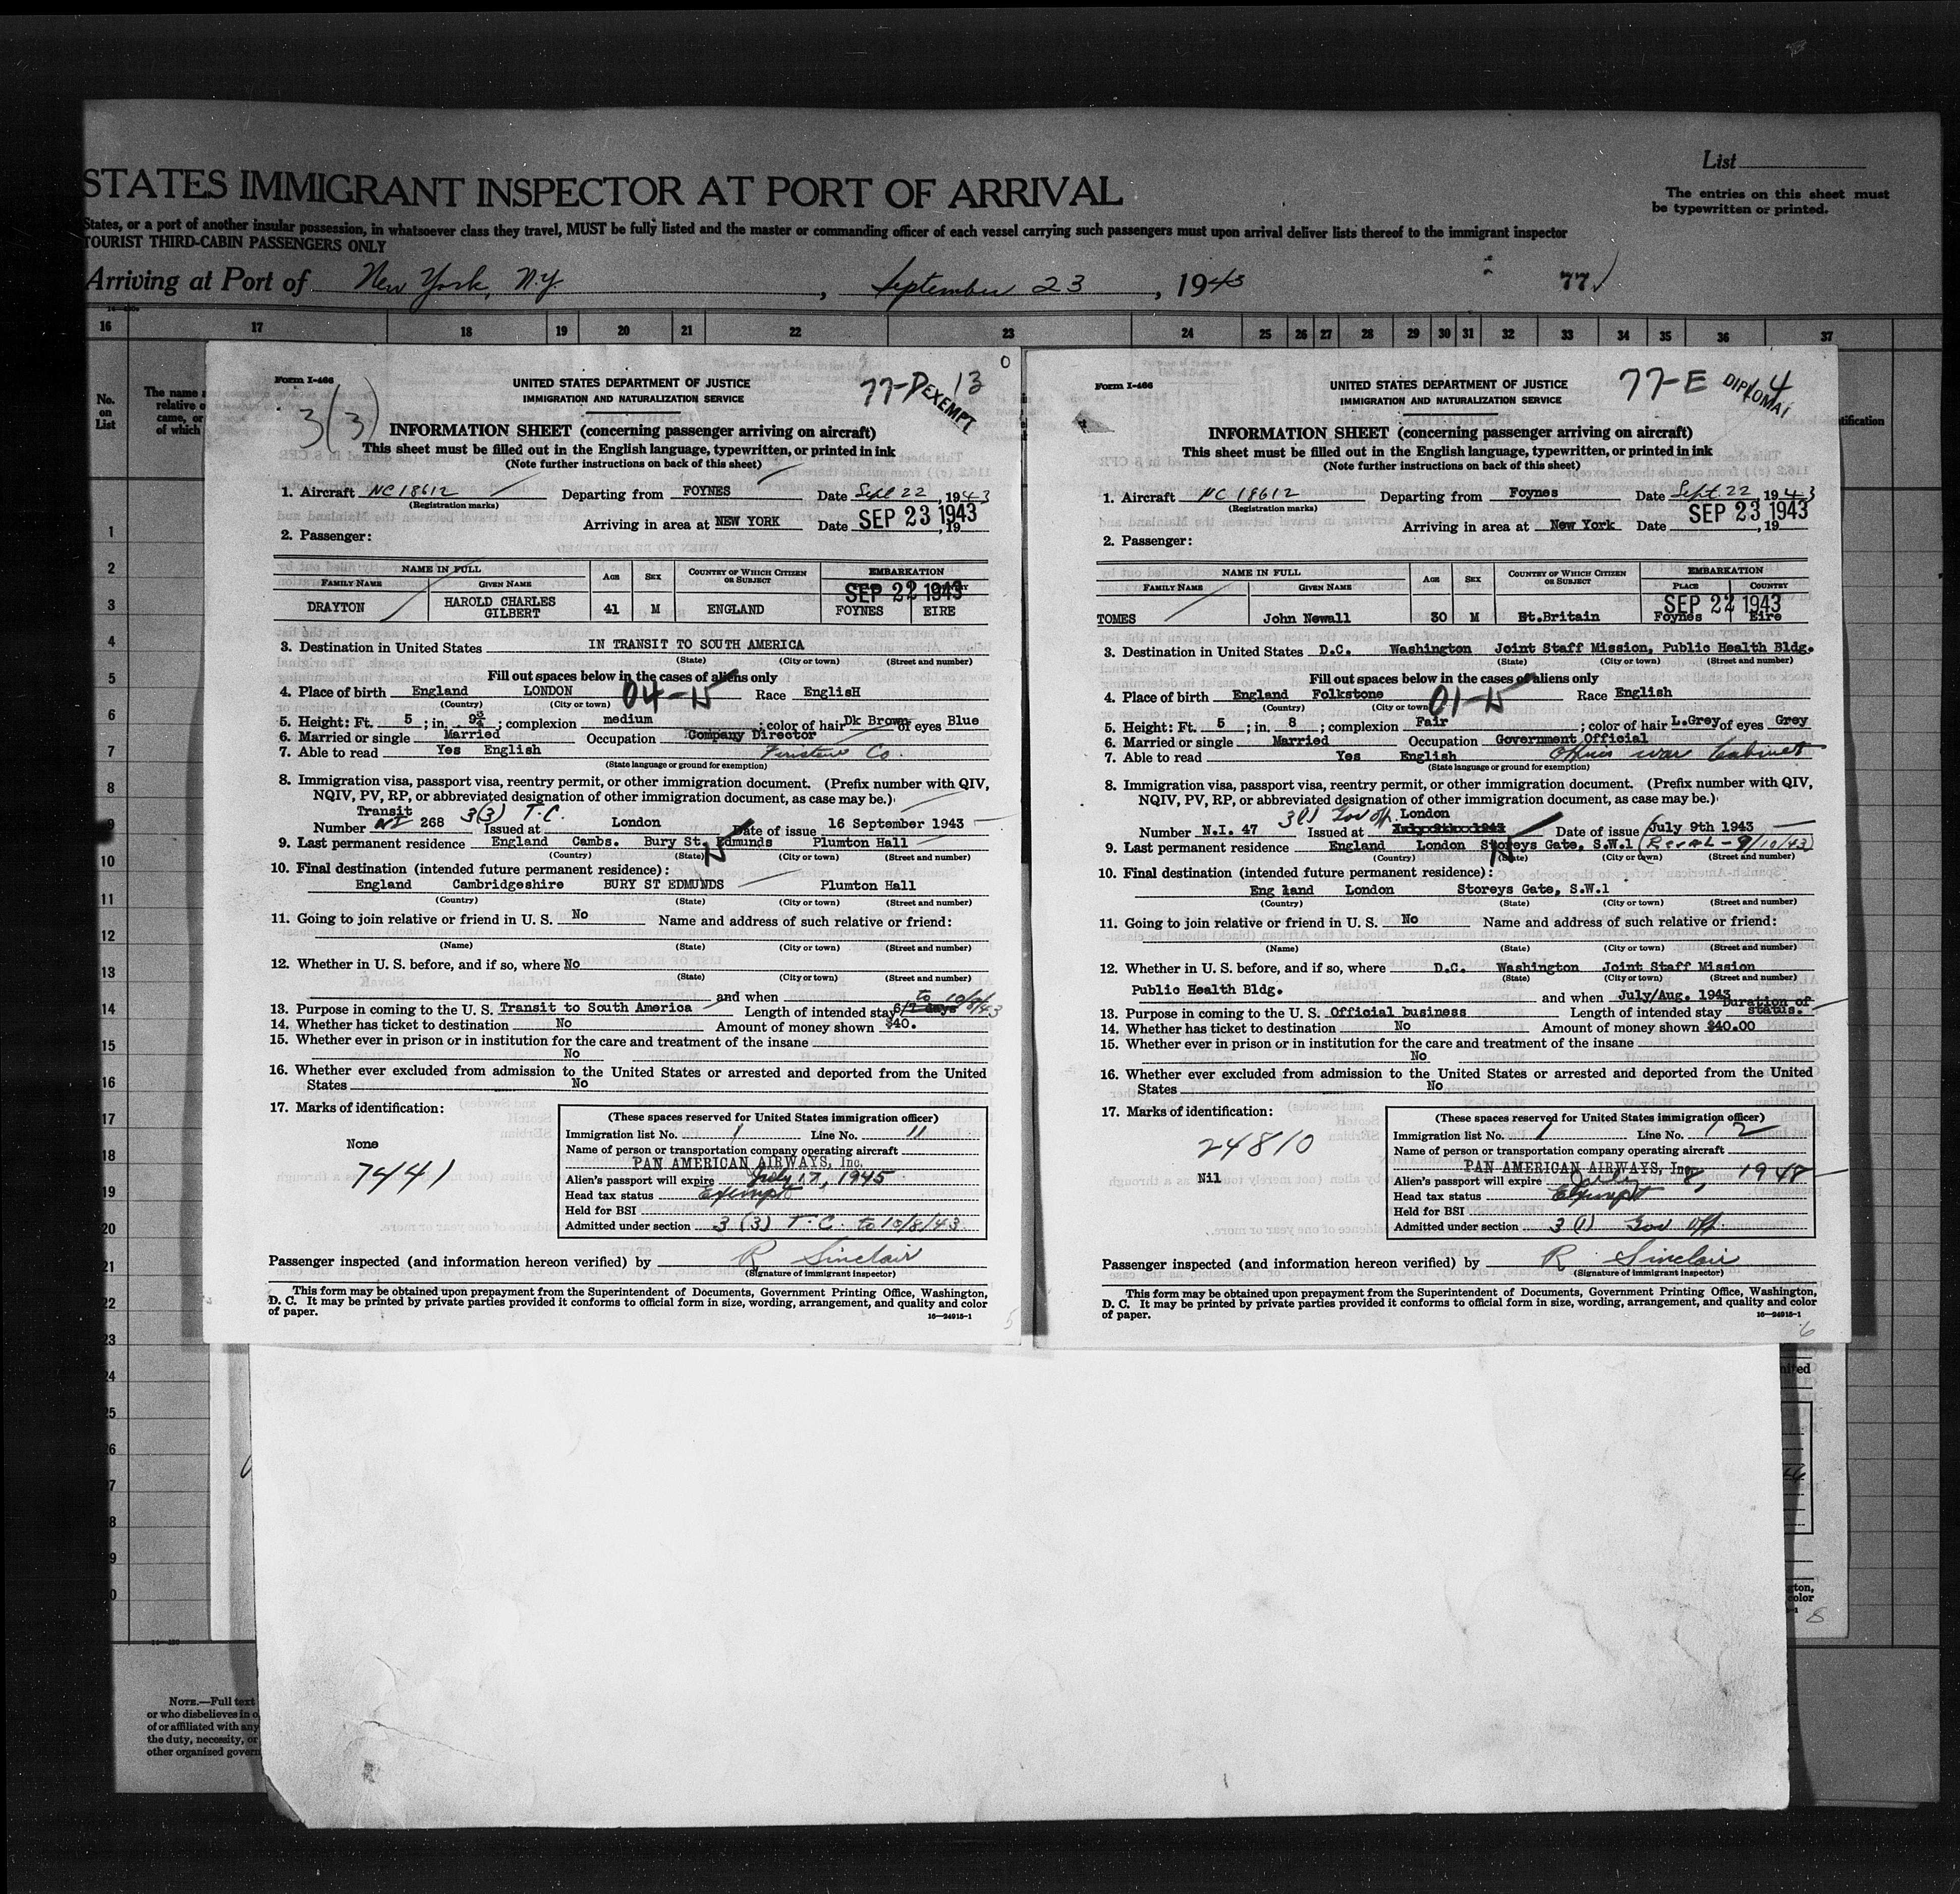 List
STATES IMMIGRANT INSPECTOR AT PORT OF ARRIVAL
The entries on this sheet must
be typewritten or printed.
States, or a port of another insular possession, in whatsoever class they travel, MUST be fully listed and the master or commanding officer of each vessel carrying such passengers must upon arrival deliver lists thereof to the immigrant inspector
TOURIST THIRD-CABIN PASSENGERS ONLY
Arriving at Port of New York, N.Y , September 23 , 1943 77
16 17 18 19 20 21 22 23 24 25 26 27 28 29 30 31 32 33 34 35 36 37
No.
on
List
The name
relative o
came, or
of which
1
2
3
4
5
6
7
8
9
10
11
12
13
14
15
16
17
18
19
20
21
22
23
24
25
26
Form I-466
3(3)
77-D EXEMPT 13
UNITED STATES DEPARTMENT OF JUSTICE
IMMIGRATION AND NATURALIZATION SERVICE
INFORMATION SHEET (concerning passenger arriving on aircraft)
This sheet must be filled out in the English language, typewritten, or printed in ink
(Note further instructions on back of this sheet)
1. Aircraft NC 18612 Departing from FOYNES Date Sept 22, 1943
(Registration marks)
Arriving in area at NEW YORK Date SEP 23 1943, 19
2. Passenger:
NAME IN FULL AGE SEX COUNTRY OF WHICH CITIZEN OR SUBJECT EMBARKATION
FAMILY NAME GIVEN NAME
SEP 22 1943
DRAYTON HAROLD CHARLES GILBERT 41 M ENGLAND FOYNES EIRE
3. Destination in United States IN TRANSIT TO SOUTH AMERICA
(State) (City or town) (Street and number)
Fill out spaces below in the cases of aliens only
4. Place of birth England LONDON 04-15 Race EnglisH
(Country) (City or town)
5. Height: Ft. 5 ; in. 9¾ ; complexion medium ; color of hair Dk Brown of eyes Blue
6. Married or single Married Occupation Company Director
7. Able to read Yes English Co.
(State language or ground for exemption)
8. Immigration visa, passport visa, reentry permit, or other immigration document. (Prefix number with QIV,
NQIV, PV, RP, or abbreviated designation of other immigration document, as case may be.)
Transit 3(3) T.C.
Number 268 Issued at London Date of issue 16 September 1943
9. Last permanent residence England Cambs. Bury St. Edmunds Plumton Hall
(Country) (State) (City or town) (Street and number)
10. Final destination (intended future permanent residence):
England Cambridgeshire BURY ST EDMUNDS Plumton Hall
(Country) (State) (City or town) (Street and number)
11. Going to join relative or friend in U. S. No Name and address of such relative or friend:
(Name) (State) (City or town) (Street and number)
12. Whether in U. S. before, and if so, where No
(State) (City or town) (Street and number)
and when
to 10/8/43
13. Purpose in coming to the U. S. Transit to South America Length of intended stay 6/7 days
14. Whether has ticket to destination No Amount of money shown $40.
15. Whether ever in prison or in institution for the care and treatment of the insane
No
16. Whether ever excluded from admission to the United States or arrested and deported from the United
States No
17. Marks of identification:
None
7441
(These spaces reserved for United States immigration officer)
Immigration list No. 1 Line No. 11
Name of person or transportation company operating aircraft
PAN AMERICAN AIRWAYS, Inc.
Alien's passport will expire July 17, 1945
Head tax status Exempt
Held for BSI
Admitted under section 3 (3) T.C. to 10/8/43
Passenger inspected (and information hereon verified) by R Sinclair
(Signature of immigrant inspector)
This form may be obtained upon prepayment from the Superintendent of Documents, Government Printing Office, Washington,
D. C. It may be printed by private parties provided it conforms to official form in size, wording, arrangement, and quality and color
of paper. 16—24915-1
5
Form I-466
77-E DIPLOMAT 4
UNITED STATES DEPARTMENT OF JUSTICE
IMMIGRATION AND NATURALIZATION SERVICE
INFORMATION SHEET (concerning passenger arriving on aircraft)
This sheet must be filled out in the English language, typewritten, or printed in ink
(Note further instructions on back of this sheet)
1. Aircraft NC 18612 Departing from Foynes Date Sept. 22, 1943
(Registration marks)
Arriving in area at New York Date SEP 23 1943, 19
2. Passenger:
NAME IN FULL AGE SEX COUNTRY OF WHICH CITIZEN OR SUBJECT EMBARKATION
FAMILY NAME GIVEN NAME PLACE COUNTRY
SEP 22 1943
TOMES John Newall 30 M Bt.Britain Foynes Eire
3. Destination in United States D.C. Washington Joint Staff Mission, Public Health Bldg.
(State) (City or town) (Street and number)
Fill out spaces below in the cases of aliens only
4. Place of birth England Folkstone 01-15 Race English
(Country) (City or town)
5. Height: Ft. 5 ; in. 8 ; complexion Fair ; color of hair L.Grey of eyes Grey
6. Married or single Married Occupation Government Official
7. Able to read Yes English Offices war Cabinet
(State language or ground for exemption)
8. Immigration visa, passport visa, reentry permit, or other immigration document. (Prefix number with QIV,
NQIV, PV, RP, or abbreviated designation of other immigration document, as case may be.)
3(1) Gov off. London
Number N.I. 47 Issued at July 9th 1943 Date of issue July 9th 1943
9. Last permanent residence England London Storeys Gate, S.W.1 9/10/43)
(Country) (State) (City or town) (Street and number)
10. Final destination (intended future permanent residence):
Eng land London Storeys Gate, S.W.1
(Country) (State) (City or town) (Street and number)
11. Going to join relative or friend in U. S. No Name and address of such relative or friend:
(Name) (State) (City or town) (Street and number)
12. Whether in U. S. before, and if so, where D.C. Washington Joint Staff Mission
(State) (City or town) (Street and number)
Public Health Bldg. and when July/Aug. 1943
13. Purpose in coming to the U. S. Official business Length of intended stay Duration of status.
14. Whether has ticket to destination No Amount of money shown $40.00
15. Whether ever in prison or in institution for the care and treatment of the insane
No
16. Whether ever excluded from admission to the United States or arrested and deported from the United
States No
17. Marks of identification:
24810
Nil
(These spaces reserved for United States immigration officer)
Immigration list No. 1 Line No. 12
Name of person or transportation company operating aircraft
PAN AMERICAN AIRWAYS, Inc.
Alien's passport will expire July 8, 1948
Head tax status Exempt
Held for BSI
Admitted under section 3 (1) Gov Off.
Passenger inspected (and information hereon verified) by R Sinclair
(Signature of immigrant inspector)
This form may be obtained upon prepayment from the Superintendent of Documents, Government Printing Office, Washington,
D. C. It may be printed by private parties provided it conforms to official form in size, wording, arrangement, and quality and color
of paper. 16—24915-1
6
NOTE.—Full text
or who disbelieves in o
of or affiliated with any
the duty, necessity, or
other organized govern
8